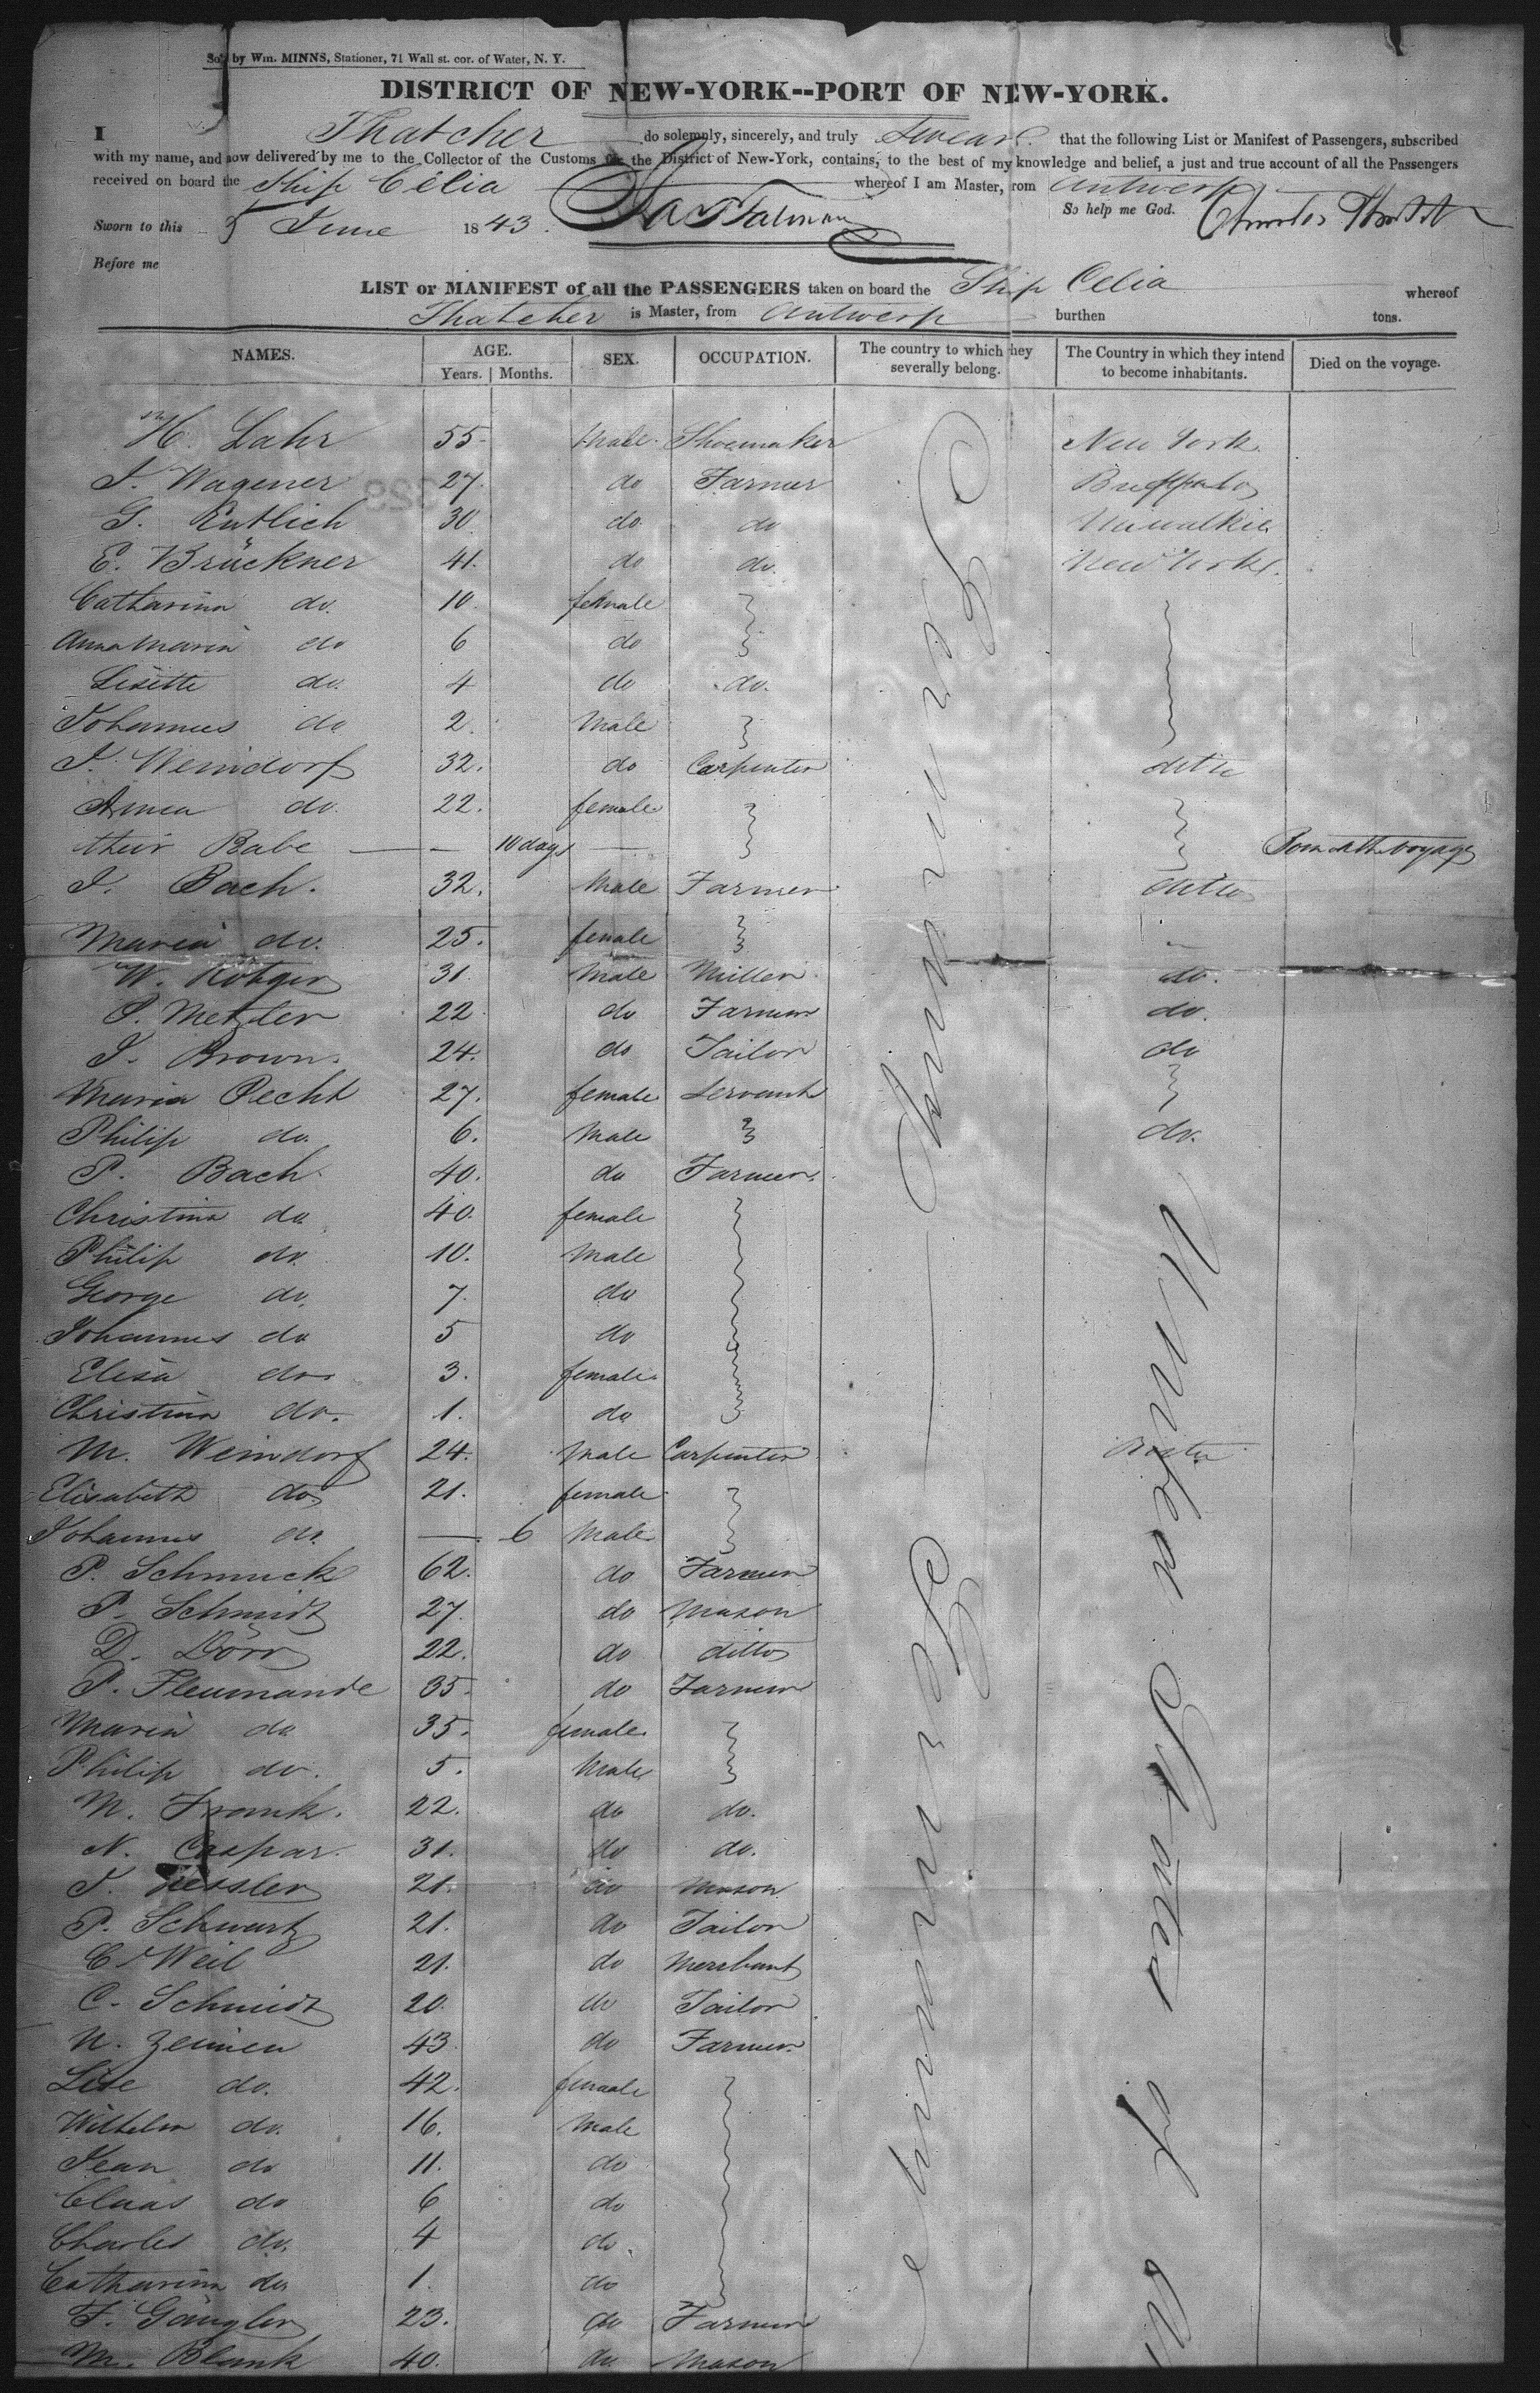 Sold by Wm. MINNS, Stationer, 71 Wall st. cor. of Water, N. Y.
DISTRICT OF NEW-YORK--PORT OF NEW-YORK.
I Thatcher do solemnly, sincerely, and truly Swear that the following List or Manifest of Passengers, subscribed
with my name, and now delivered by me to the Collector of the Customs for the District of New-York, contains, to the best of my knowledge and belief, a just and true account of all the Passengers
received on board the Ship Celia whereof I am Master, from Antwerp
Sworn to this 5 June 1843. So help me God. Charles
Before me
LIST or MANIFEST of all the PASSENGERS taken on board the Ship Celia whereof
Thatcher is Master, from Antwerp burthen tons.
NAMES. AGE. Years. Months. SEX. OCCUPATION. The country to which they severally belong. The Country in which they intend to become inhabitants. Died on the voyage.
H. Lahr 55 Male Shoemaker New York
J. Wagener 27. do Farmer Buffalo
G. Entlich 30 do do
E. Brückner 41. do do New York
Catharina do 10. female
Anna Maria do 6 do
Lisette do. 4 do do.
Johannes do 2. Male
J. Weindorf 32. do Carpenter ditto
Anna do. 22. female
their Babe — — 10 days — Born on the voyage
J. Bach. 32. Male Farmer ditto
Maria do. 25. female
W. Rötger 31 Male Miller do.
P. Metzler 22 do Farmer do.
J. Brown. 24. do Tailor do
Maria Pecht 27. female Servant
Philip do. 6. Male do.
P. Bach 40. do Farmer
Christina do 40. female
Philip do. 10. Male
George do 7. do
Johannes do 5 do
Elisa do 3. female
Christina do. 1. do
M. Weindorf 24. Male Carpenter
Elisabeth do 21. female
Johannes do. — 6 Male
P. Schmuck 62. do Farmer
P. Schmidt 27. do Mason
D. Dörr 22. do ditto
P. Fleumande 35. do Farmer
Maria do 35. female
Philip do. 5. Male
N. Frank. 22. do do.
N. Caspar. 31. do do.
J. Kessler 21. do Mason
P. Schwartz 21. do Tailor
C. Weil 21. do Merchant
C. Schmidt 20. do Tailor
N. Zeimen 43 do Farmer
Lise do. 42. female
Wilhelm do. 16. Male
Jean do 11. do
Claas do 6 do
Charles do. 4 do.
Catharina do 1. do
F. Gängler 23. do Farmer
M. Blank 40. do. Mason
Germany — Germany
United States of